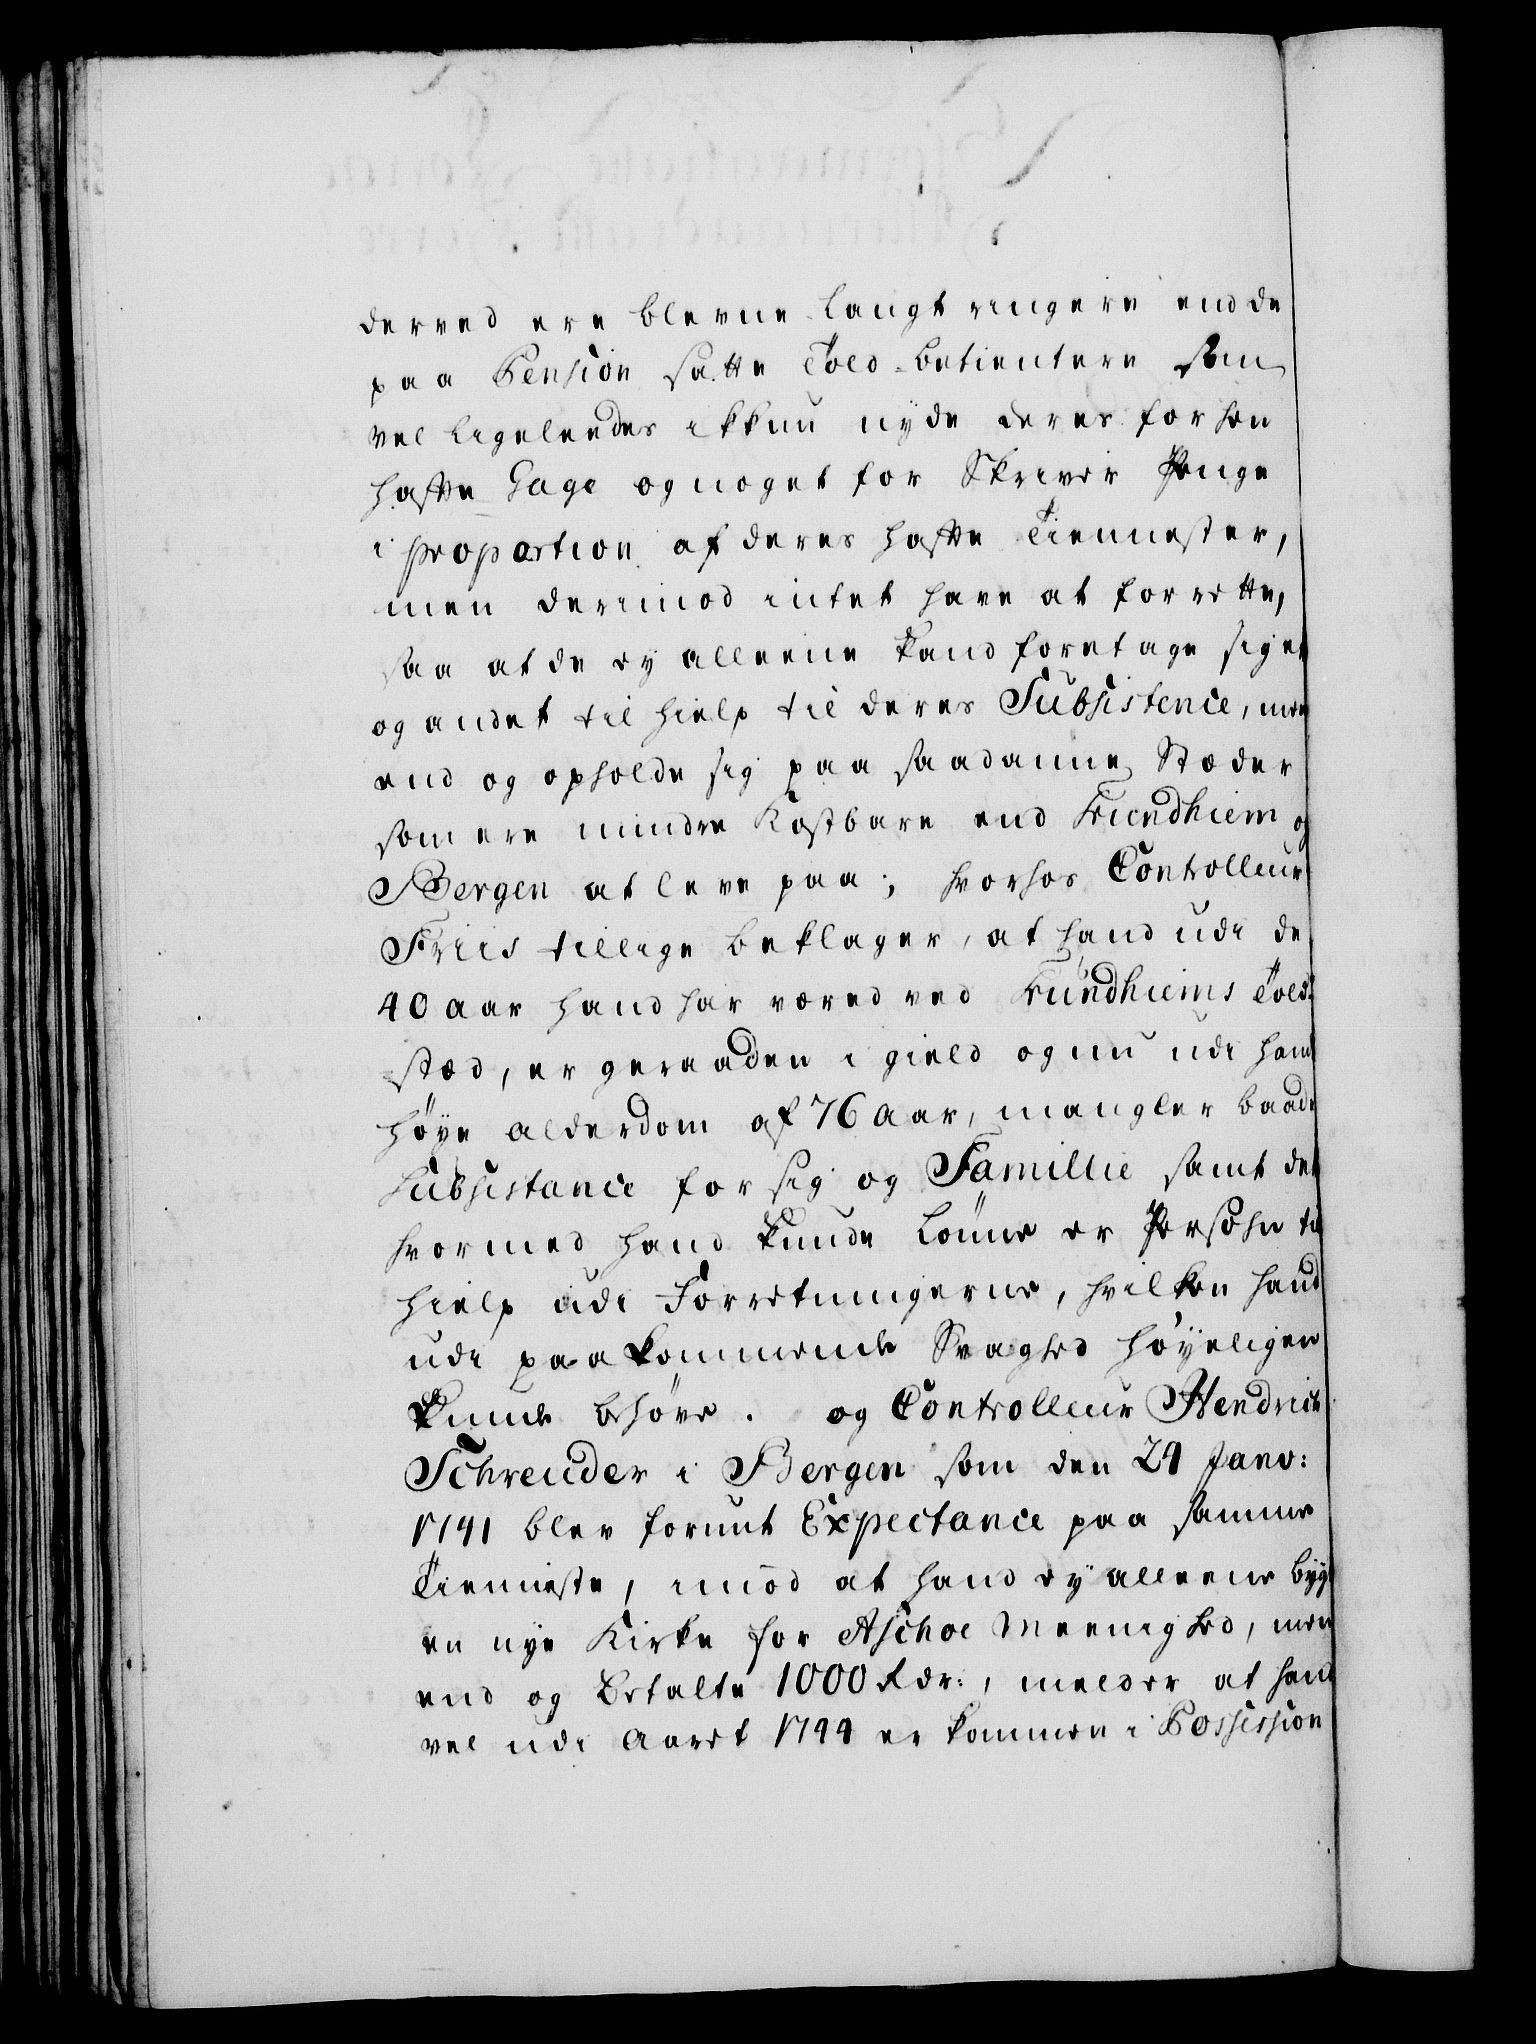 derved ere blevne langt ringere end de
paa Pension satte Told-betientere som
vel ligeleedes ikkun nyde deres forhen
hafte Gage og noget for Skriver Penge
i proportion af deres hafte Tiennester,
men derimod intet have at forrette,
saa at de ey alleene kand foretage sig et
og andet til hielp til deres Subsistence, men
end og opholde sig paa saadanne Stæder
som ere mindre Kostbare end Trundhiem og
Bergen at leve paa; hvorhos Controlleur
Friis tillige beklager, at hand udi de
40 aar hand har væred ved Trundhiems Told-
stæd, er geraaden i gield og nu udi hans
høye alderdom af 76 aar, mangler baade
Subsistance for sig og Famillie samt det
hvormed hand kunde lønne en Persohn til
hielp udi Forretningerne, hvilken hand
udi paakommende Svaghed høyeligen
kunde behøve. og Controlleur Hendrich
Schreuder i Bergen som den 24 Janv:
1741 blev forunt Expectance paa samme
Tienneste, imod at hand ey alleene bygt
en nye Kirke for Aschoe Meenighed, men
end og betalte 1000 Rdr:, melder at hand
vel udi Aaret 1744 er kommen i Possission